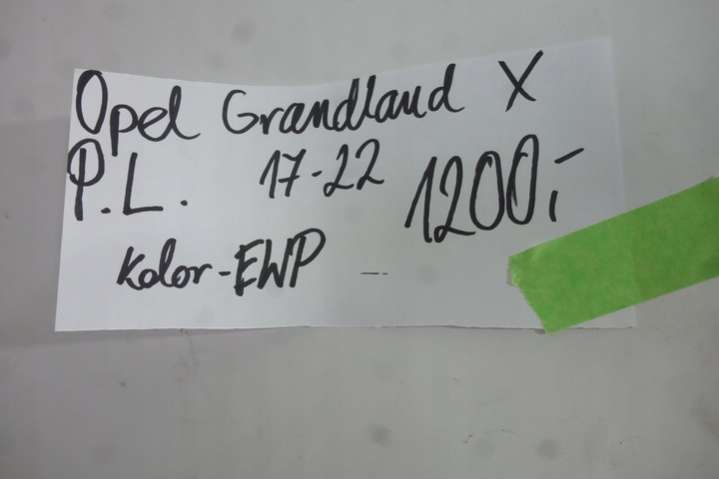 Opel Grandland X
P.L. 17-22 1200,-
Kolor-EWP